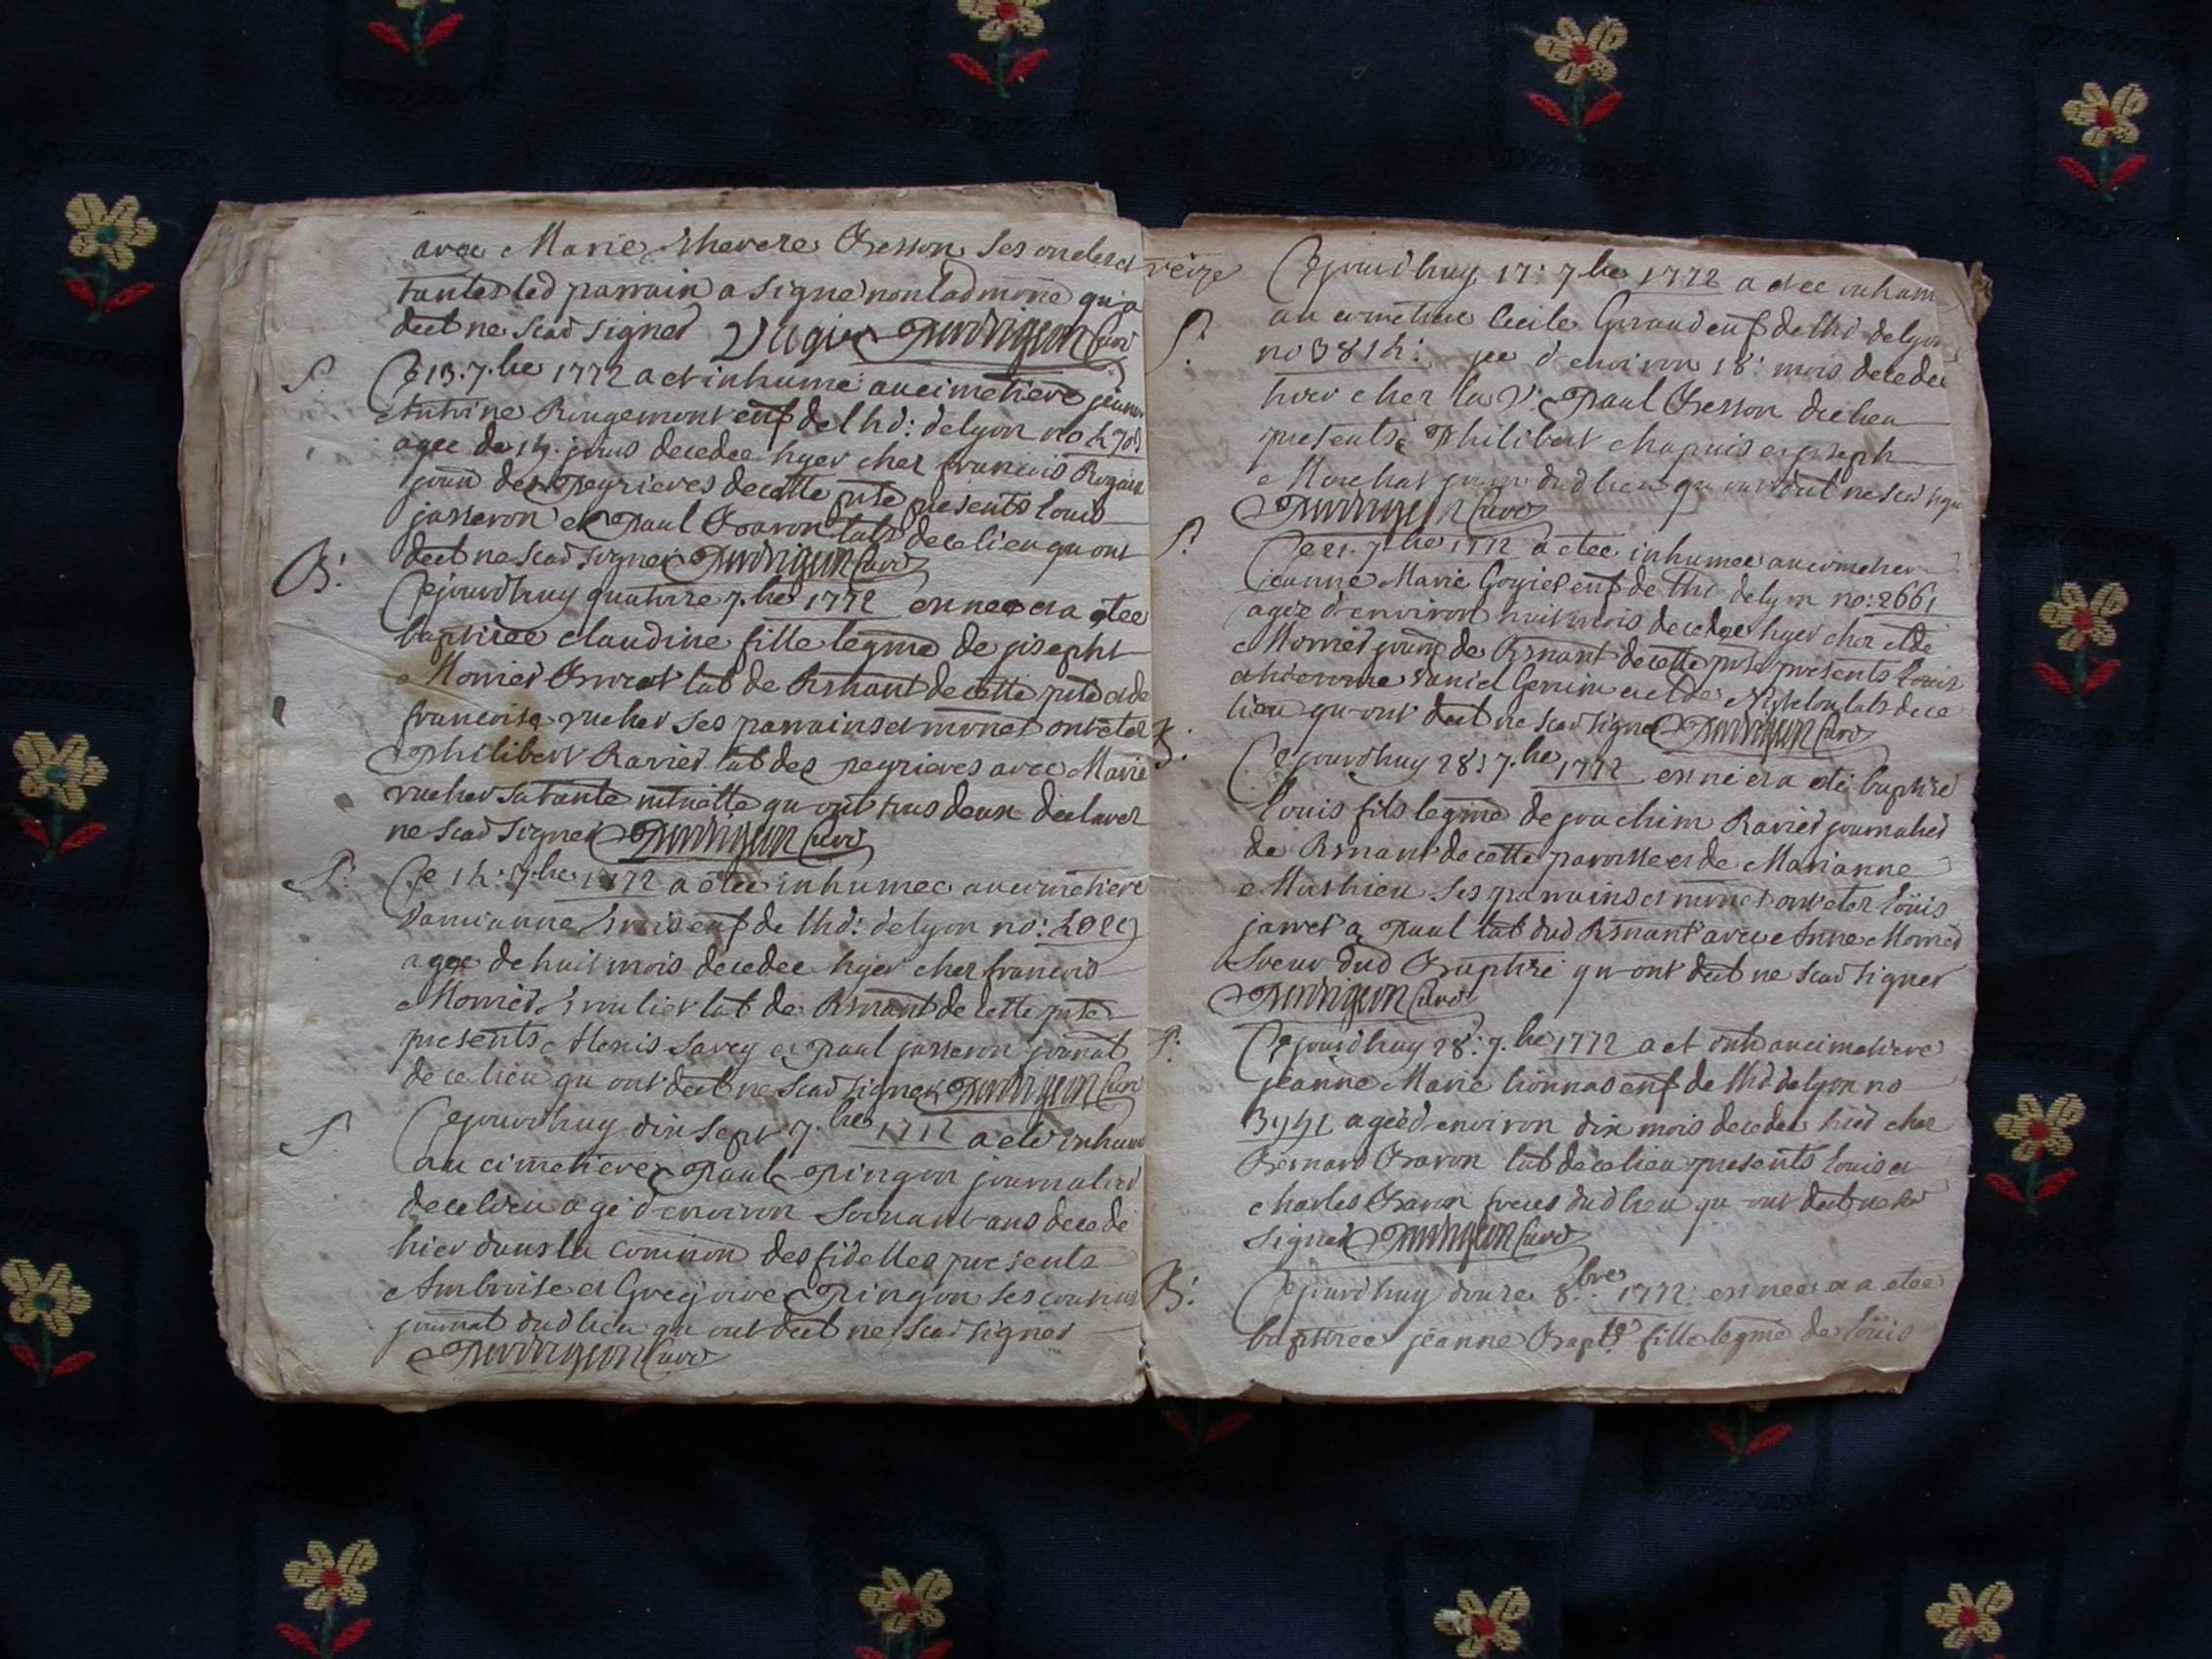 avec Marie therese Besson ses oncles et
tantes led parrain a signé non lad mône qui a
declt ne scad signer Vagier Curé
S. Ce 13. 7.bre 1772 a et inhumé au cimetiere jeanne
Antoine Rougemont enf de lhd: de lyon no
agee de 14. jours decedee hyer chez francois
journ des peyrieres decette psse presents louis
jasseron et Paul Baron labs de ce lieu qu ont
declt ne scad signer Curé
B. Cejourdhuy quatorze 7.bre 1772 est nee et a etee
baptisee claudine fille legme de joseph
Morrier lab de Brnant decette psse et de
francoise rucher ses parrains et mônes ont eter
Philibert Ravier lab des peyrieres avec Marie
rucher sa tante qu ont tous deux declarer
ne scad signer Curé
S. Ce 14: 7.bre 1772 a étee inhumee au cimetiere
enf de lhd: de lyon no:
agee de huit mois decedee hyer chez francois
Morrier lab de Brnant de cette psse
presents Alexis Savey et Paul jasseron journal
de ce lieu qu ont declt ne scad signer Curé
S. Cejourdhuy dix sept 7.bre 1772 a eté inhum
au cimetiere Paul Pingon journalier
decelieu agé denviron ans decedé
hier dans la comion des fidelles presents
Ambroise et Gregoire Pingon ses cousins
journal dud lieu qu ont declt ne scad signer
Curé
S. Cejourdhuy 17: 7.bre 1772 a etee inhum
au cimetiere Cecile Giraud enf de lhd de lyon
no 3814: gee d'environ 18: mois decedee
hier chez la Ve Paul Besson de ce lieu
presents Philibert chapuis et joseph
Morchat journ dud lieu qu ont declt ne scad signer
Curé
S. Ce 21. 7.bre 1772 a etee inhumee au cimetier
jeanne Marie enf de lhd de lyon no: 2661
agée d'environ huit mois decedee hyer chez
Morrier journ de Brnant decette psse presents louis
et de labs de ce
lieu qu ont declt ne scad signer Curé
B. Cejourdhuy 28: 7.bre 1772 est né et a été baptisé
Louis fils legme de joachim Ravier journalier
de Brnant de cette paroisse et de Marianne
Mathieu ses parrains et mônes ont eter Louis
a Paul lab dud Brnant avec Anne Morrier
soeur dud Baptisé qu ont declt ne scad signer
Curé
S. Cejourdhuy 28: 7.bre 1772 a et inh au cimetiere
jeanne Marie lionnas enf de lhd de lyon no
agée d'environ dix mois decedee hier chez
Bernard Baron lab de ce lieu presents Louis et
charles Baron freres dud lieu qu ont declt ne scad
signer Curé
B. Cejourdhuy douze 8.bre 1772 est nee et a etee
baptisee jeanne Baptt fille legme de Louis